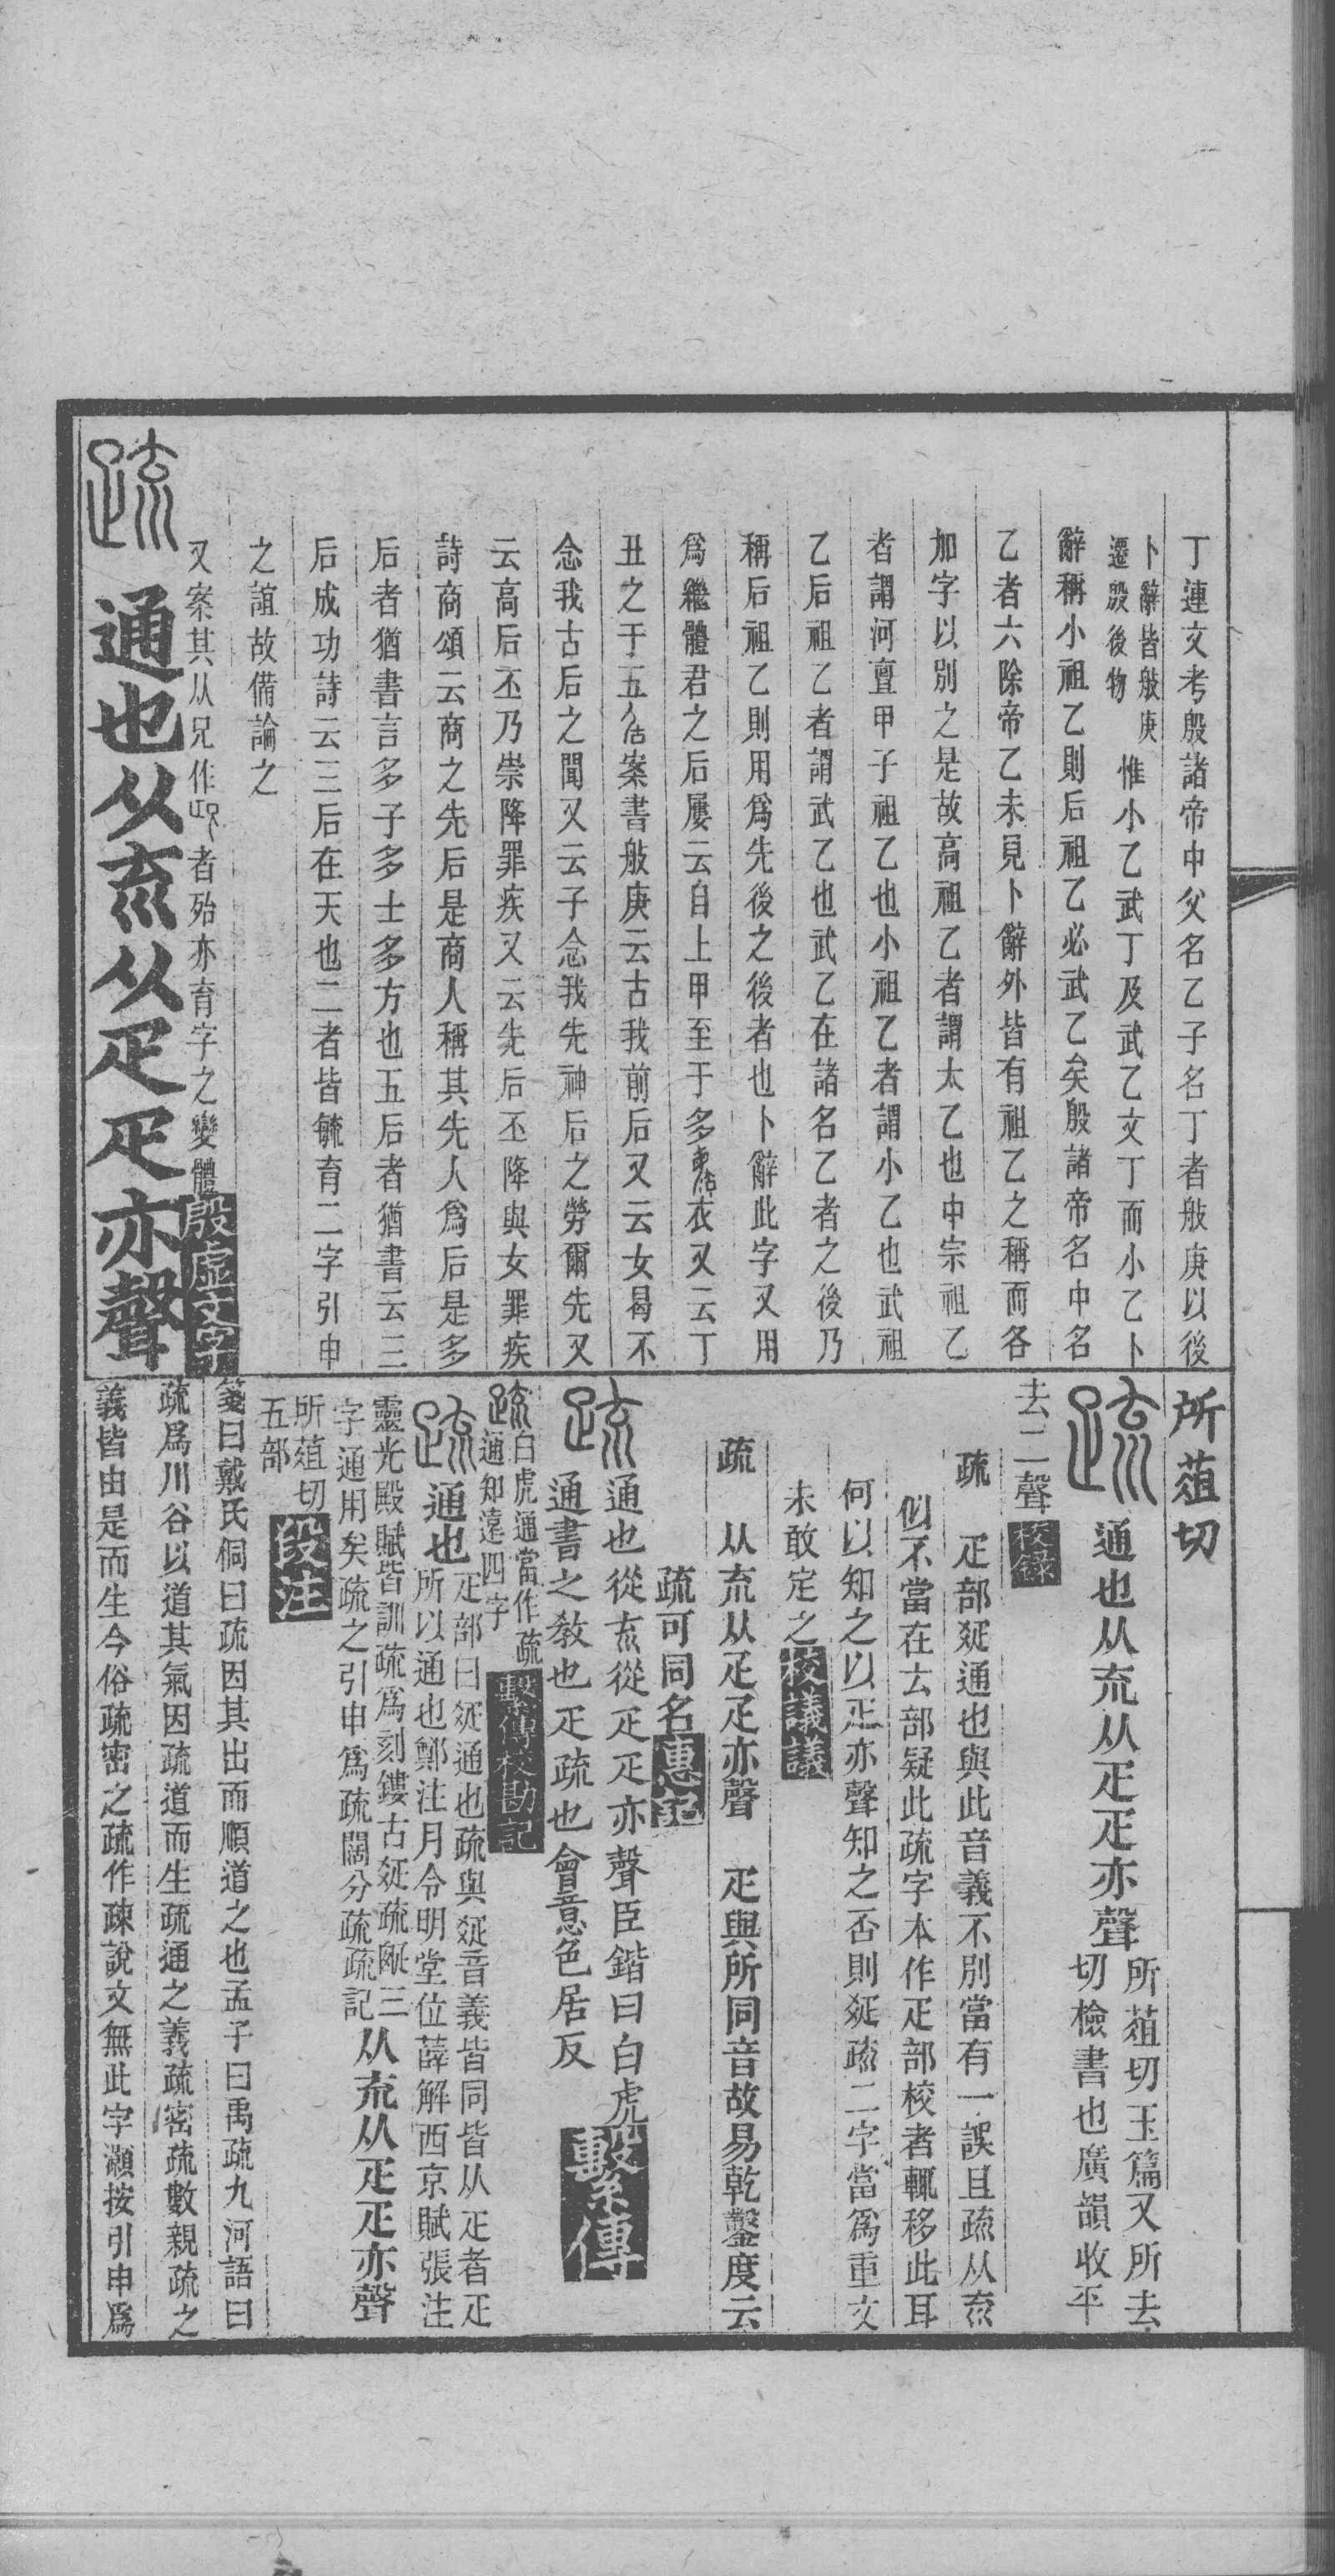 丁連文考殷諸帝中父名乙子名丁者般庚以後
卜辭皆般庚
遷殷後物
惟小乙武丁及武乙文丁而小乙卜
辭稱小祖乙則后祖乙必武乙矣殷諸帝名中名
乙者六除帝乙未見卜辭外皆有祖乙之稱而各
加字以別之是故高祖乙者謂太乙也中宗祖乙
者謂河亶甲子祖乙也小祖乙者謂小乙也武祖
乙后祖乙者謂武乙也武乙在諸名乙者之後乃
稱后祖乙則用爲先後之後者也卜辭此字又用
爲繼體君之后屢云自上甲至于多衣又云丁
丑之于五案書般庚云古我前后又云女曷不
念我古后之聞又云子念我先神后之勞爾先又
云高后丕乃崇降罪疾又云先后丕降與女罪疾
詩商頌云商之先后是商人稱其先人爲后是多
后者猶書言多子多士多方也五后者猶書云三
后成功詩云三后在天也二者皆毓育二字引申
之誼故備論之
又案其从兄作者殆亦育字之變體殷虛文字
疏 通也从㐬从疋疋亦聲
所葅切
疏 通也从㐬从疋疋亦聲
所葅切玉篇又所去
切檢書也廣韻收平
去二聲校錄
疏 疋部𤕟通也與此音義不別當有一誤且疏从㐬
似不當在𠫓部疑此疏字本作疋部校者輒移此耳
何以知之以疋亦聲知之否則𤕟疏二字當爲重文
未敢定之校議議
疏 从㐬从疋疋亦聲 疋與所同音故易乾鑿度云
疏可同名惠記
疏 通也從㐬從疋疋亦聲臣鍇曰白虎
通書之教也疋疏也會意色居反繫傳
疏
白虎通當作疏
通知遠四字
繫傳校勘記
疏 通也
疋部曰𤕟通也疏與𤕟音義皆同皆从疋者疋
所以通也鄭注月令明堂位薛解西京賦張注
靈光殿賦皆訓疏爲刻鏤古𤕟疏䟽三
字通用矣疏之引申爲疏闊分疏疏記
从㐬从疋疋亦聲
所葅切
五部
段注
箋曰戴氏侗曰疏因其出而順道之也孟子曰禹疏九河語曰
疏爲川谷以道其氣因疏道而生疏通之義疏密疏數親疏之
義皆由是而生今俗疏密之疏作疎說文無此字灝按引申爲